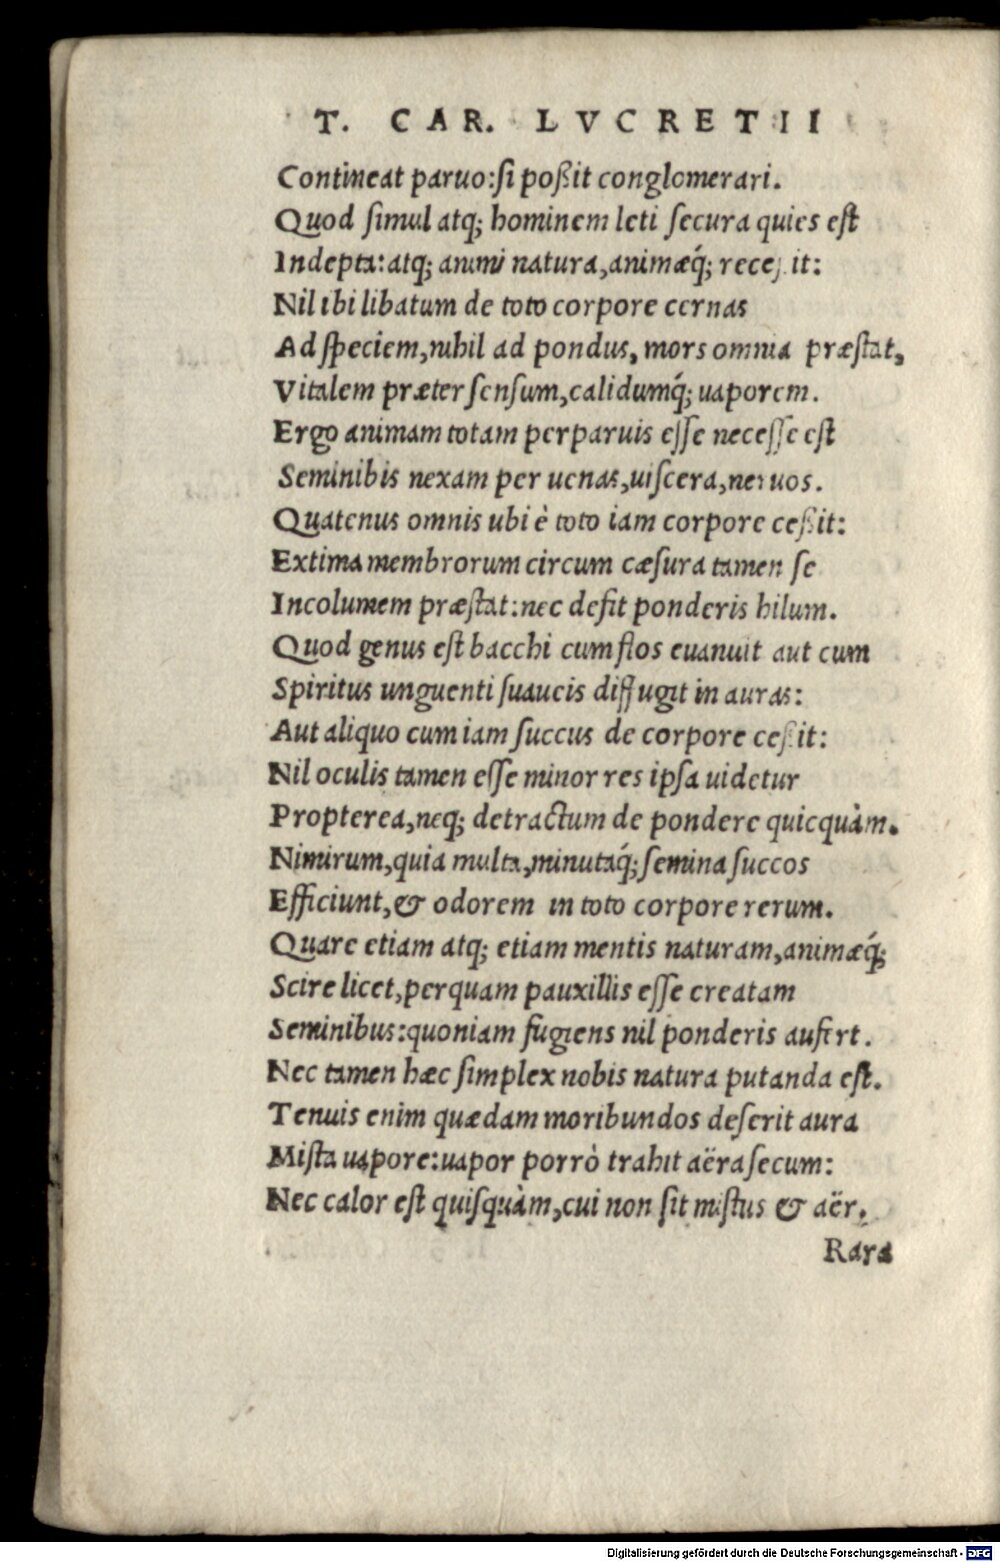 T. CAR. LVCRETII
Contineat paruo:si poßit conglomerari.
Quod simul atq; hominem leti secura quies est
Indepta:atq; animi natura,animæq́; receßit:
Nil ibi libatum de toto corpore cernas
Ad speciem,nihil ad pondus, mors omnia præstat,
Vitalem præter sensum,calidumq́; uaporem.
Ergo animam totam perparuis esse necesse est
Seminibis nexam per uenas,uiscera,neruos.
Quatenus omnis ubi è toto iam corpore ceßit:
Extima membrorum circum cæsura tamen se
Incolumem præstat:nec defit ponderis hilum.
Quod genus est bacchi cum flos euanuit aut cum
Spiritus unguenti suaueis diffugit in auras:
Aut aliquo cum iam succus de corpore ceßit:
Nil oculis tamen esse minor res ipsa uidetur
Propterea,neq; detractum de pondere quicquàm.
Nimirum,quia multa,minutaq́; semina succos
Efficiunt,& odorem in toto corpore rerum.
Quare etiam atq; etiam mentis naturam,animæq́;
Scire licet,perquam pauxillis esse creatam
Seminibus:quoniam fugiens nil ponderis aufert.
Nec tamen hæc simplex nobis natura putanda est.
Tenuis enim quædam moribundos deserit aura
Mista uapore:uapor porrò trahit aëra secum:
Nec calor est quisquàm,cui non sit mistus & aër.
Rara
Digitalisierung gefördert durch die Deutsche Forschungsgemeinschaft - DFG